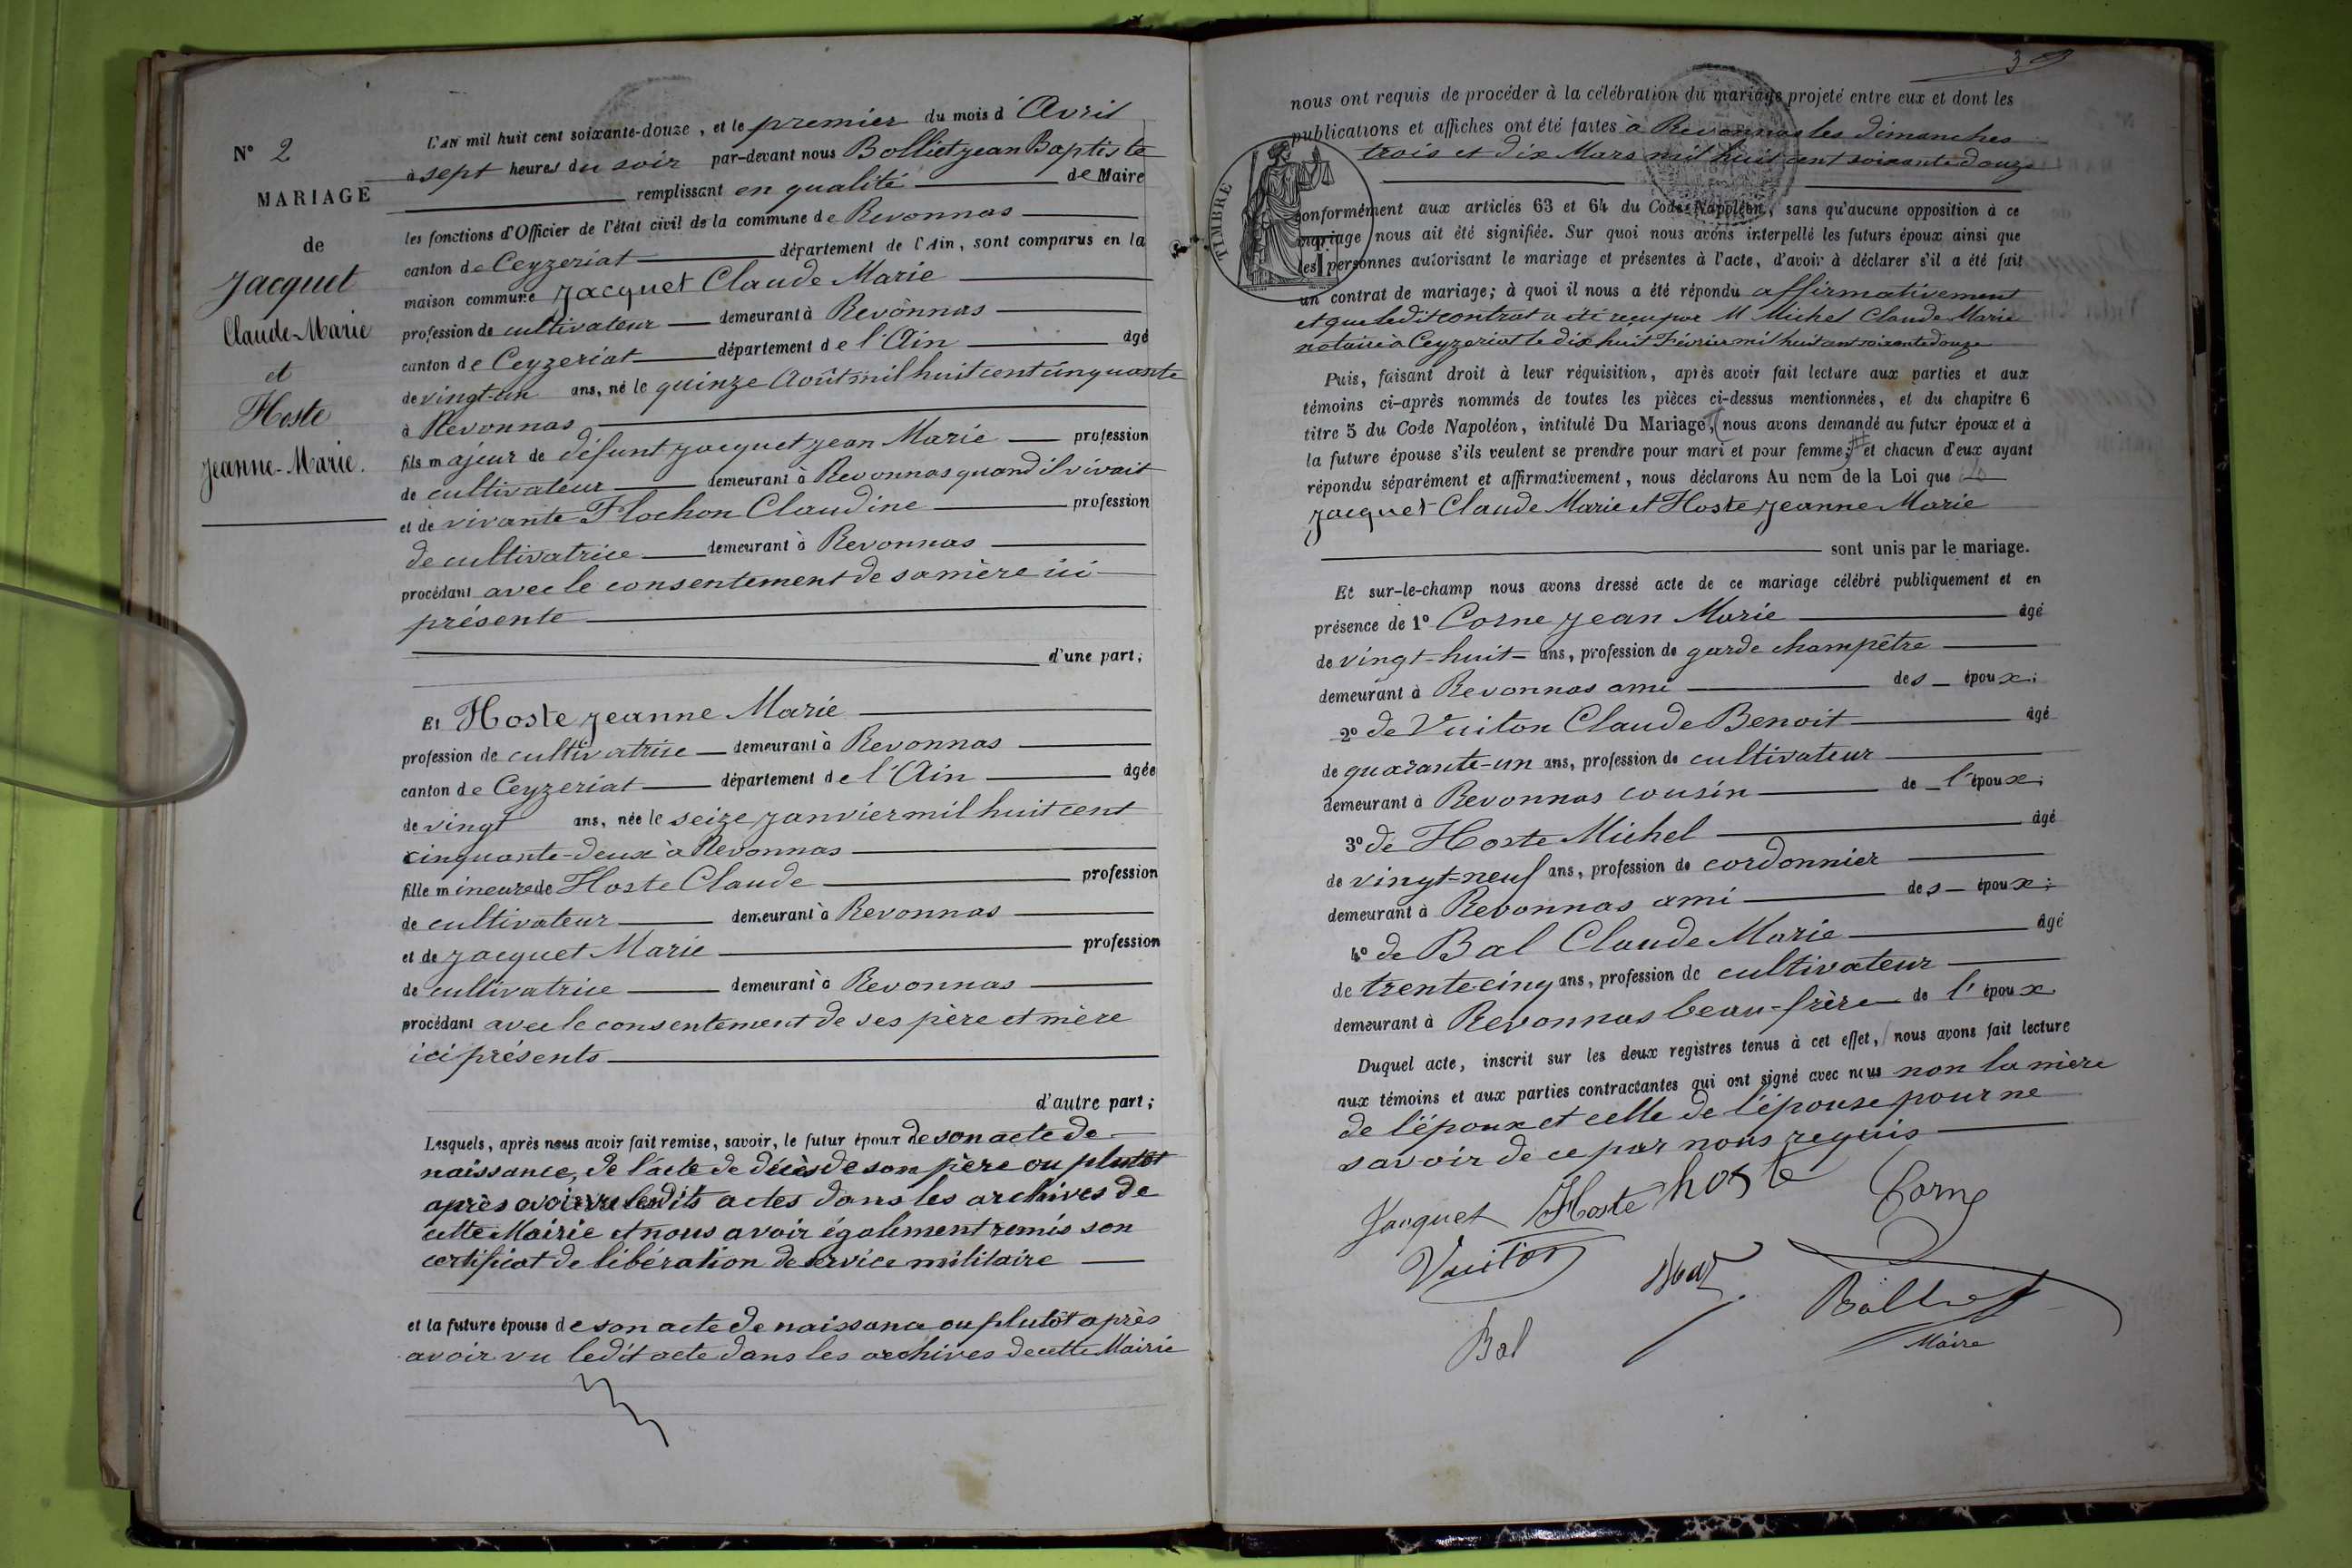 N° 2
MARIAGE
de
Jacquet
Claude-Marie
et
Hoste
Jeanne-Marie.
L'AN mil huit cent soixante-douze, et le premier du mois d'Avril
à sept heures du soir par-devant nous Bolliet Jean Baptiste
remplissant en qualité de Maire
les fonctions d'Officier de l'état civil de la commune de Revonnas
canton de Ceyzeriat département de l'Ain, sont comparus en la
maison commune Jacquet Claude Marie
profession de cultivateur demeurant à Revonnas
canton de Ceyzeriat département de l'Ain âgé
de vingt-un ans, né le quinze Août mil huit cent cinquante
à Revonnas
fils majeur de défunt Jacquet Jean Marie profession
de cultivateur demeurant à Revonnas quand il vivait
et de vivante Flochon Claudine profession
de cultivatrice demeurant à Revonnas
procédant avec le consentement de sa mère ici
présente
d'une part;
Et Hoste Jeanne Marie
profession de cultivatrice demeurant à Revonnas
canton de Ceyzeriat département de l'Ain âgée
de vingt ans, née le seize Janvier mil huit cent
cinquante-deux à Revonnas
fille mineure de Hoste Claude profession
de cultivateur demeurant à Revonnas
et de Jacquet Marie profession
de cultivatrice demeurant à Revonnas
procédant avec le consentement de ses père et mère
ici présents
d'autre part;
Lesquels, après nous avoir fait remise, savoir, le futur époux de son acte de
naissance, de l'acte de décès de son père ou plutôt
après avoir vu lesdits actes dans les archives de
cette Mairie et nous avoir également remis son
certificat de libération de service militaire
et la future épouse de son acte de naissance ou plutôt après
avoir vu ledit acte dans les archives de cette Mairie
3
nous ont requis de procéder à la célébration du mariage projeté entre eux et dont les
publications et affiches ont été faites à Revonnas les dimanches
trois et dix Mars mil huit cent soixante douze
TIMBRE
conformément aux articles 63 et 64 du Code Napoléon, sans qu'aucune opposition à ce
mariage nous ait été signifiée. Sur quoi nous avons interpellé les futurs époux ainsi que
les personnes autorisant le mariage et présentes à l'acte, d'avoir à déclarer s'il a été fait
un contrat de mariage; à quoi il nous a été répondu affirmativement
et que ledit contrat a été reçu par M Michel Claude Marie
notaire à Ceyzeriat le dix huit Février mil huit cent soixante douze
Puis, faisant droit à leur réquisition, après avoir fait lecture aux parties et aux
témoins ci-après nommés de toutes les pièces ci-dessus mentionnées, et du chapitre 6
titre 5 du Code Napoléon, intitulé Du Mariage, nous avons demandé au futur époux et à
la future épouse s'ils veulent se prendre pour mari et pour femme; et chacun d'eux ayant
répondu séparément et affirmativement, nous déclarons Au nom de la Loi que
Jacquet Claude Marie et Hoste Jeanne Marie
sont unis par le mariage.
Et sur-le-champ nous avons dressé acte de ce mariage célébré publiquement et en
présence de 1° Corne Jean Marie âgé
de vingt-huit ans, profession de garde champêtre
demeurant à Revonnas ami des époux;
2° de Vuiton Claude Benoit âgé
de quarante-un ans, profession de cultivateur
demeurant à Revonnas cousin de l'époux;
3° de Hoste Michel âgé
de vingt-neuf ans, profession de cordonnier
demeurant à Revonnas ami des époux;
4° de Bal Claude Marie âgé
de trente-cinq ans, profession de cultivateur
demeurant à Revonnas beau-frère de l'époux
Duquel acte, inscrit sur les deux registres tenus à cet effet, nous avons fait lecture
aux témoins et aux parties contractantes qui ont signé avec nous non la mère
de l'époux et celle de l'épouse pour ne
savoir de ce par nous requis
Jacquet Hoste hoste Corne
Vuiton
Bolliet
Bal
Maire